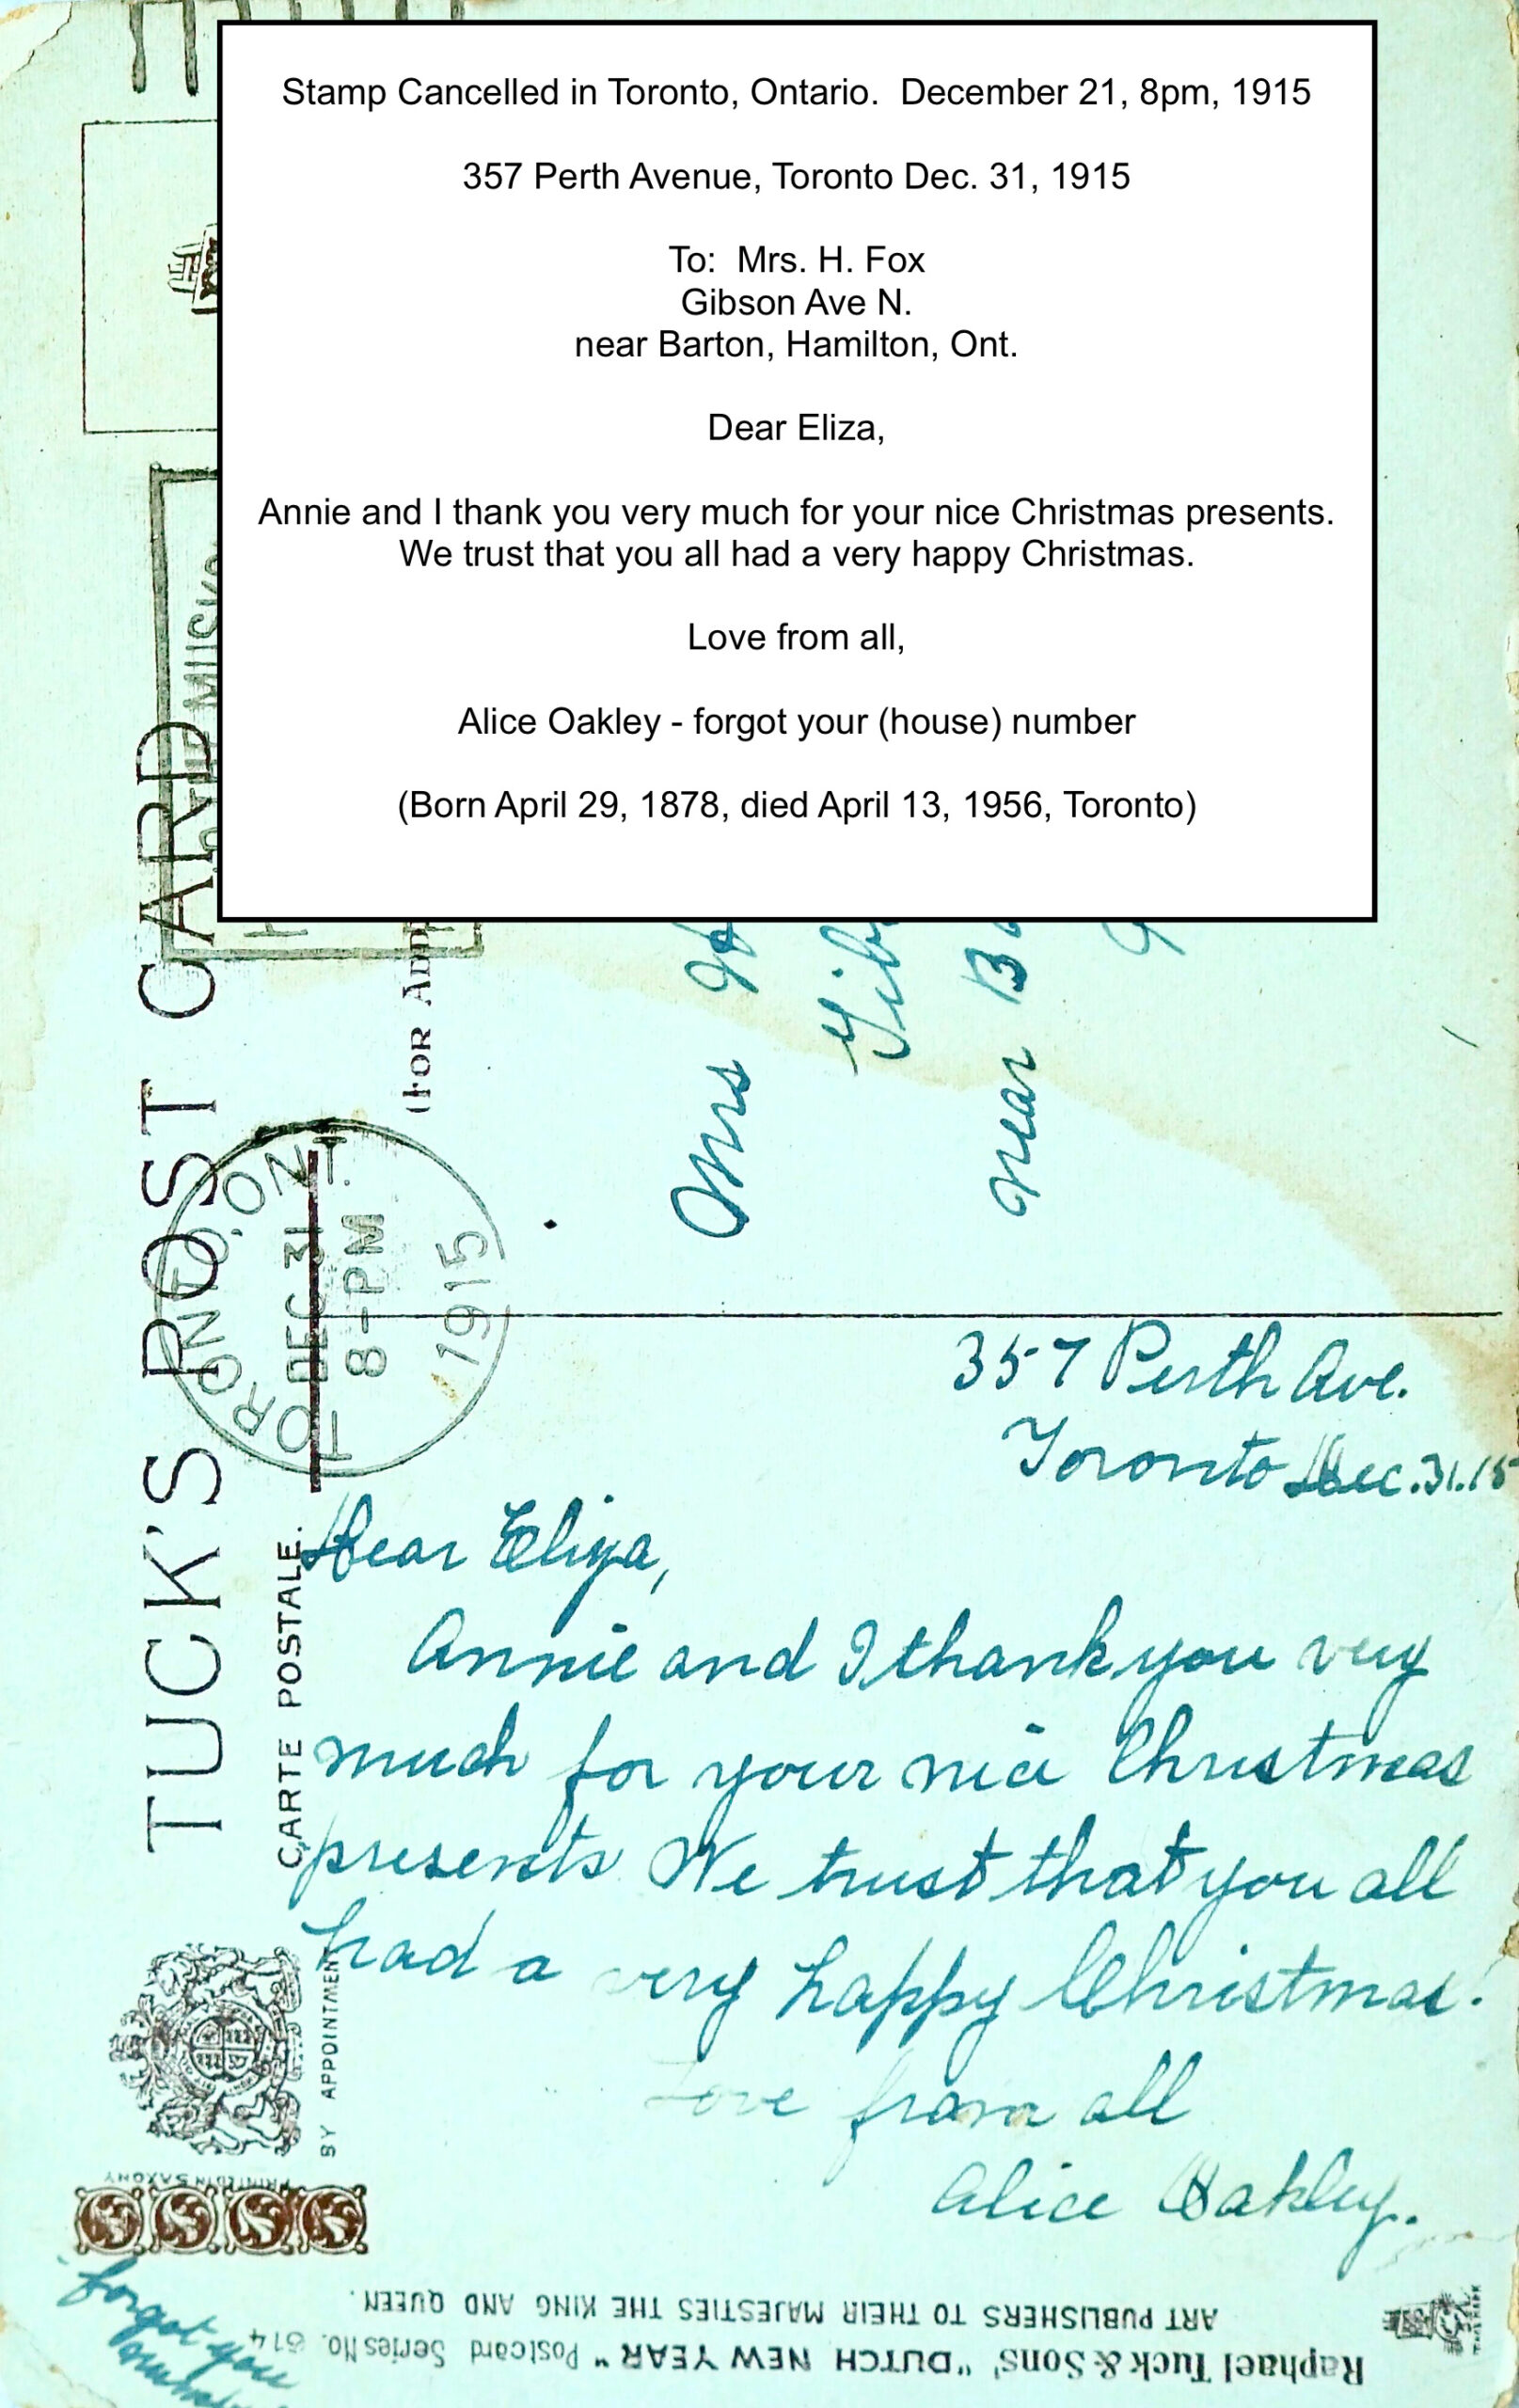 Stamp Cancelled in Toronto, Ontario.  December 21, 8pm, 1915
357 Perth Avenue, Toronto Dec. 31, 1915
To:  Mrs. H. Fox
Gibson Ave N.
near Barton, Hamilton, Ont.
Dear Eliza,
Annie and I thank you very much for your nice Christmas presents.
We trust that you all had a very happy Christmas.
Love from all,
Alice Oakley - forgot your (house) number
(Born April 29, 1878, died April 13, 1956, Toronto)
TUCK'S POST CARD
CARTE POSTALE.
TORONTO, ONT.
DEC 31
8-PM
1915
Mrs
near
357 Perth Ave.
Toronto Dec. 31. 15
Dear Eliza,
Annie and I thank you very
much for your nice Christmas
presents We trust that you all
had a very happy Christmas.
Love from all
Alice Oakley.
BY APPOINTMENT
PRINTED IN SAXONY
forgot you
Raphael Tuck & Sons' "DUTCH NEW YEAR" Postcard Series No. 614
ART PUBLISHERS TO THEIR MAJESTIES THE KING AND QUEEN.